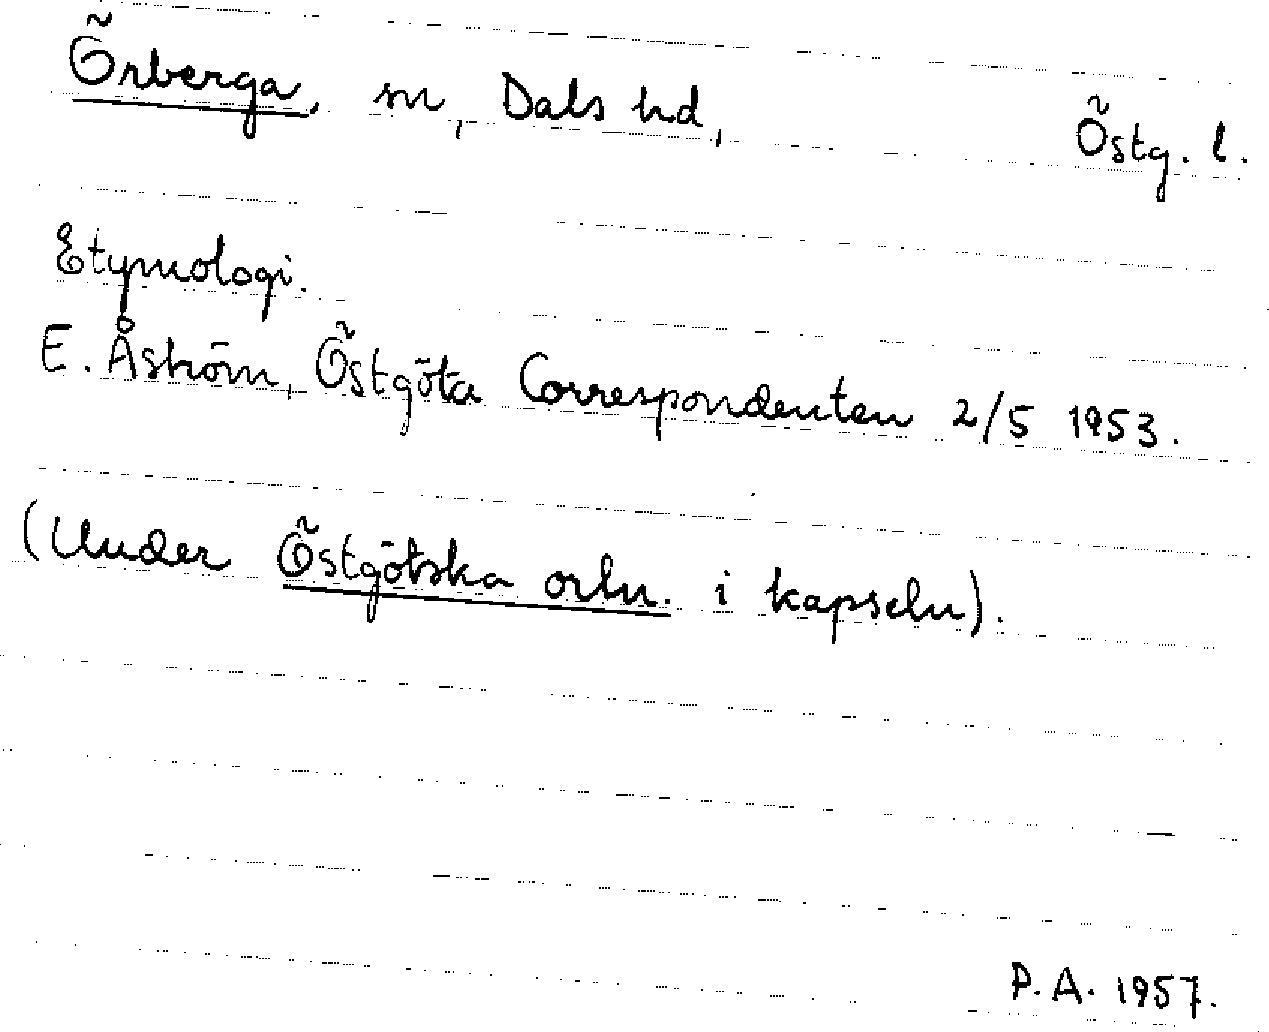 Örberga, sn, Dals hd, Östg. l.
Etymologi.
E. Åström, Östgöta Correspondenten 2/5 1953.
(Under Östgötska ortn. i kapseln).
P.A. 1957.